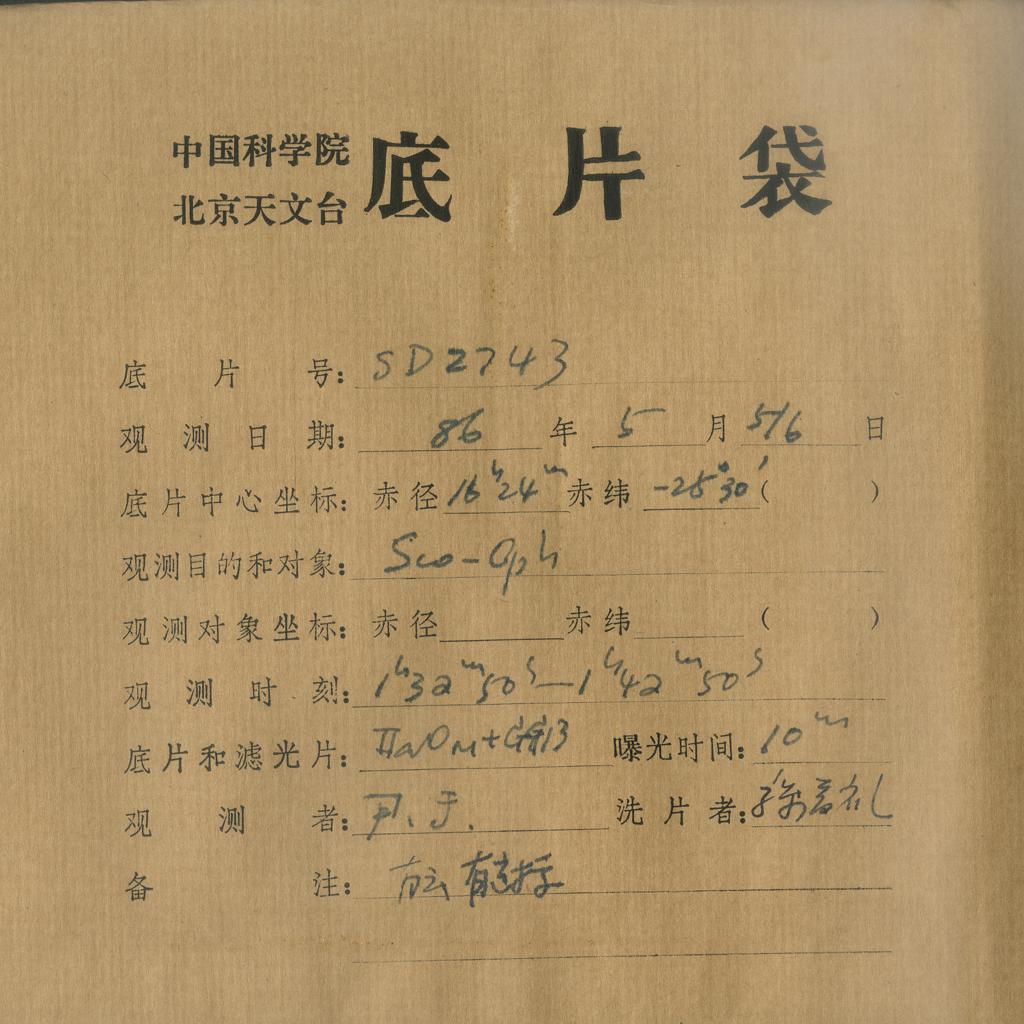 中国科学院
北京天文台
底片袋
底片号: SD2743
观测日期: 86年5月5/6日
底片中心坐标: 赤径16h24m赤纬-25°30′( )
观测目的和对象: Sco-Oph
观测对象坐标: 赤径 赤纬 ( )
观测时刻: 1h32m50s—1h42m50s
底片和滤光片: IIaO +GG13 曝光时间: 10m
观测者: 尹、于. 洗片者:
备注: 有云